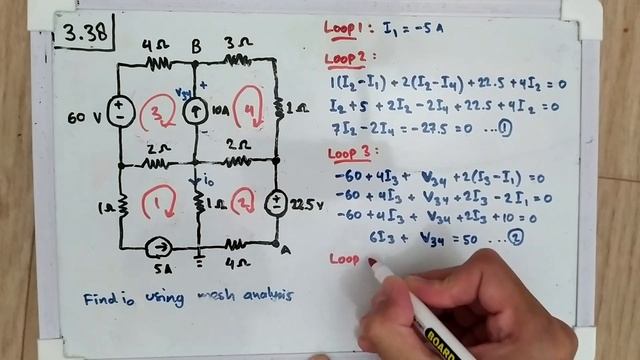 3.38
4Ω B 3Ω
+
V34
60 V + - 3 10A 4 1Ω
-
2Ω 2Ω
io
1Ω 1 1Ω 2 + - 22.5V
5A 4Ω A
Find io using mesh analysis
Loop 1: I1 = -5A
Loop 2:
1(I2-I1) + 2(I2-I4) + 22.5 + 4I2 = 0
I2 + 5 + 2I2 - 2I4 + 22.5 + 4I2 = 0
7I2 - 2I4 = -27.5 = 0 ... ①
Loop 3:
-60 + 4I3 + V34 + 2(I3-I1) = 0
-60 + 4I3 + V34 + 2I3 - 2I1 = 0
-60 + 4I3 + V34 + 2I3 + 10 = 0
6I3 + V34 = 50 ... ②
Loop
BOARD